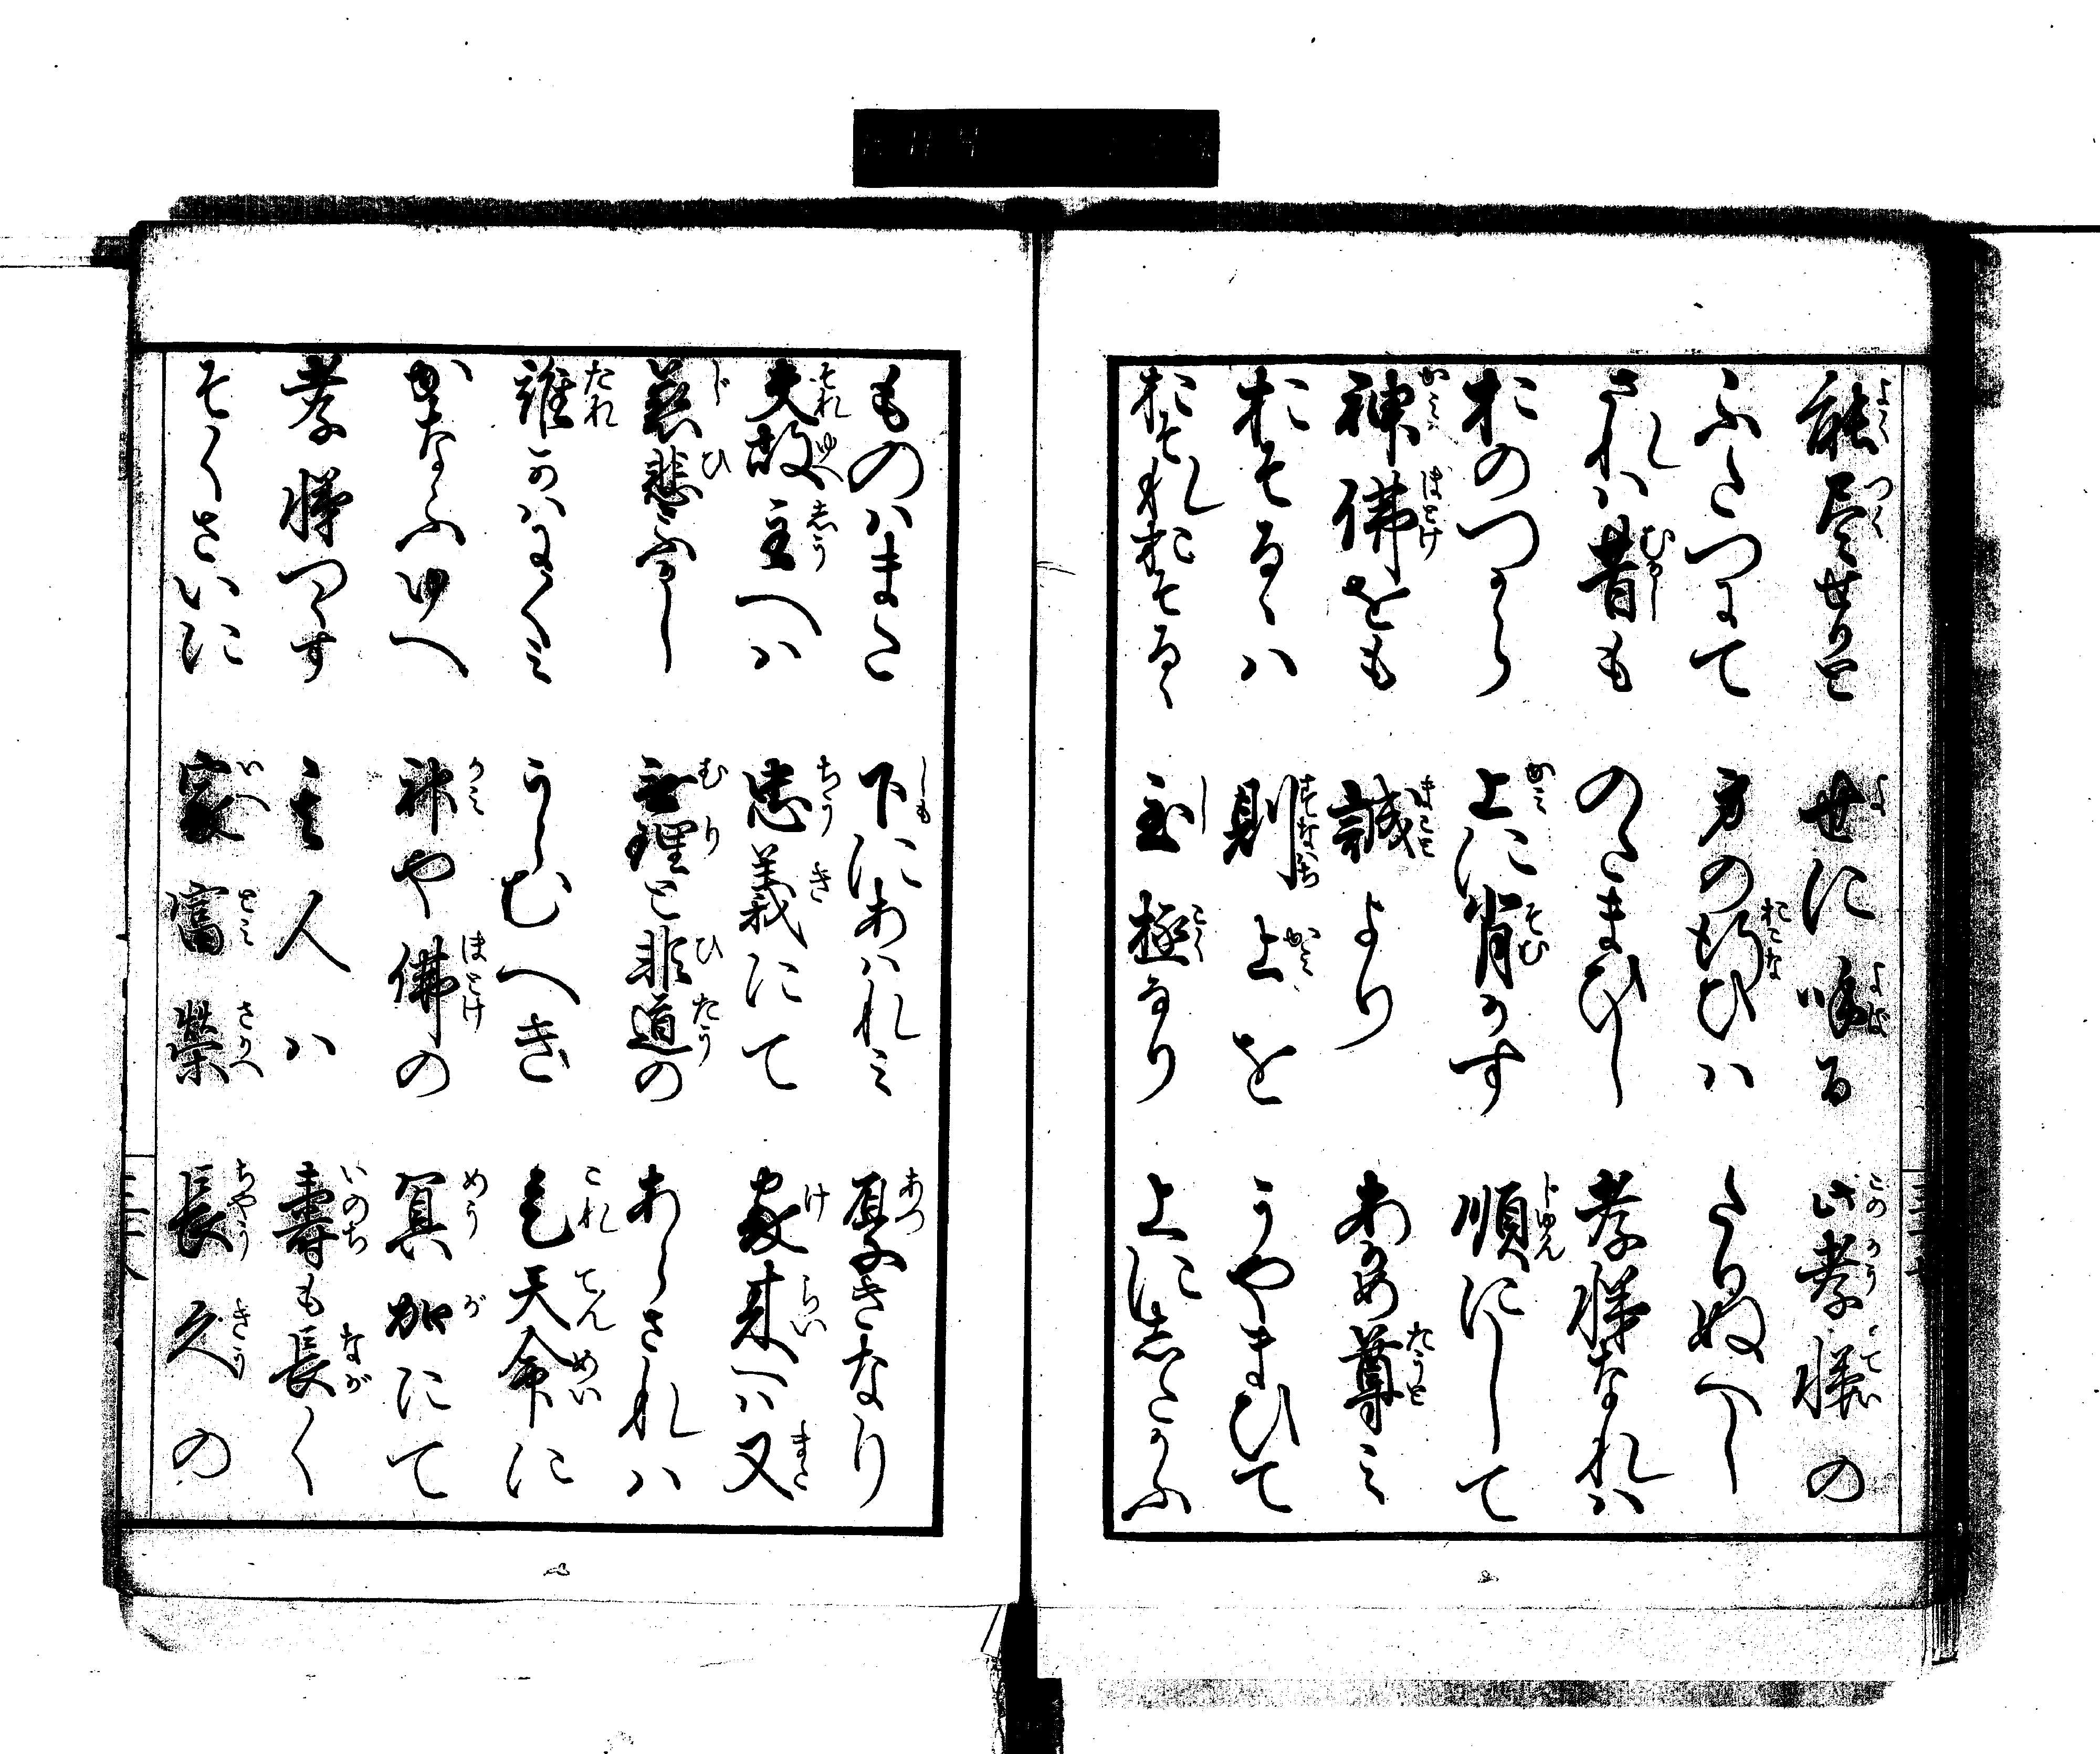 能尽せりと 世に呼る 此孝悌の
ふたつにて 身の行ひハ たりぬへし
されハ昔も のたまひし 孝悌なれハ
おのつから 上に背かす 順にして
神佛をも 誠より あかめ尊ミ
おそるゝハ 則上を うやまひて
おそれおそるゝ 至極なり 上に志たかふ
ものハまた 下にあハれミ 厚きなり
夫故主へハ 忠義にて 家来へハ又
慈悲ふかし 無理と非道の あらされハ
誰かハにくミ うらむへき 是天命に
かなふゆへ 神や佛の 冥加にて
孝悌つくす 其人ハ 壽も長く
そくさいに 家富榮 長久の